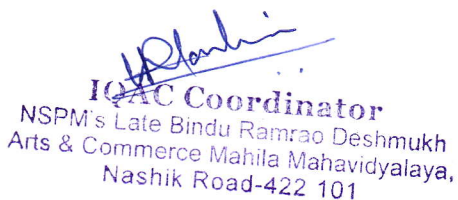 IQAC Coordinator
NSPM's Late Bindu Ramrao Deshmukh
Arts & Commerce Mahila Mahavidyalaya,
Nashik Road-422 101